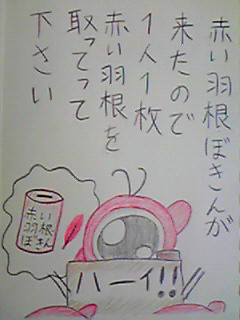 赤い羽根ぼきんが
来たので
1人1枚
赤い羽根を
取ってって
下さい
赤い
羽根
ぼきん
ハーイ!!